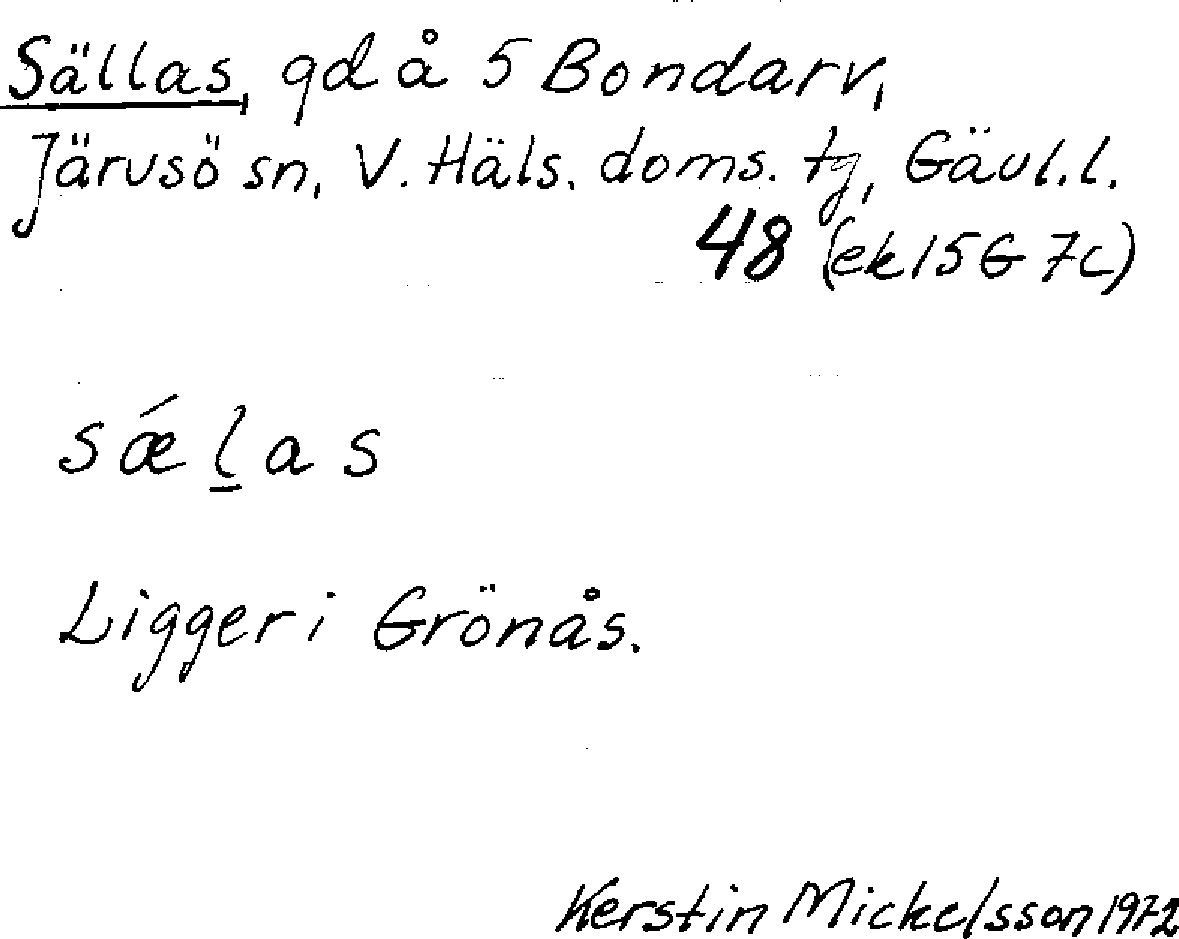 Sällas, gd å 5 Bondarv,
Järvsö sn, V. Häls. doms. tg, Gävl.l.
48 (ek 15G 7c)
sǽl̲as
Ligger i Grönås.
Kerstin Mickelsson 1972